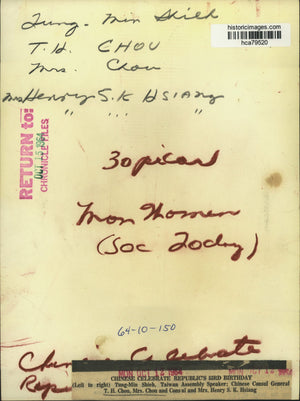 historicimages.com
hca79520
Tung-Min Shieh
T. H. CHOU
Mrs. Chou
Mrs Henry S. K HSIANG
" " "
RETURN to:
OCT 15 1964
CHRONICLE FILES
30picas
Mon Women
(Soc Today)
64-10-150
Chinese Celebrate
MON OCT 12 1964
MON OCT 12 1964
CHINESE CELEBRATE REPUBLIC'S 53RD BIRTHDAY
(Left to right) Tung-Min Shieh, Taiwan Assembly Speaker; Chinese Consul General
T. H. Chou, Mrs. Chou and Consul and Mrs. Henry S. K. Hsiang